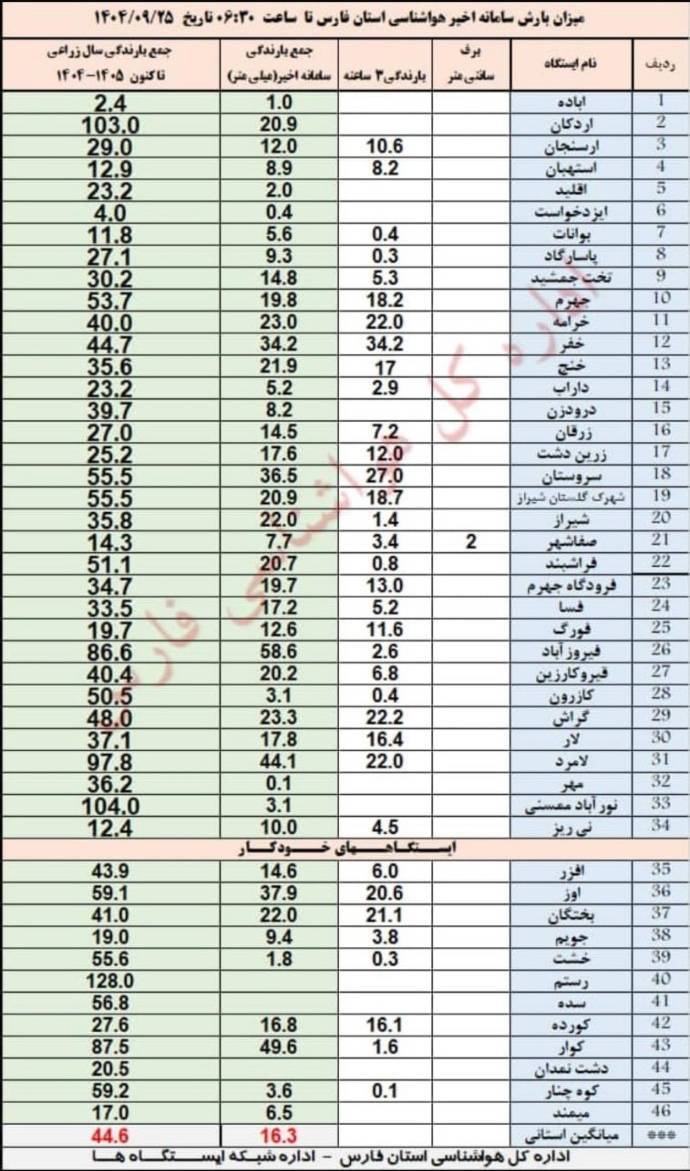 میزان بارش سامانه اخیر هواشناسی استان فارس تا ساعت ۰۶:۳۰ تاریخ ۱۴۰۴/۰۹/۲۵
ردیف نام ایستگاه برف سانتی متر بارندگی ۳ ساعته جمع بارندگی سامانه اخیر(میلی متر) جمع بارندگی سال زراعی تا کنون ۱۴۰۵-۱۴۰۴
1 اباده 1.0 2.4
2 اردکان 20.9 103.0
3 ارسنجان 10.6 12.0 29.0
4 استهبان 8.2 8.9 12.9
5 اقلید 2.0 23.2
6 ایزدخواست 0.4 4.0
7 بوانات 0.4 5.6 11.8
8 پاسارگاد 0.3 9.3 27.1
9 تخت جمشید 5.3 14.8 30.2
10 جهرم 18.2 19.8 53.7
11 خرامه 22.0 23.0 40.0
12 خفر 34.2 34.2 44.7
13 خنج 17 21.9 35.6
14 داراب 2.9 5.2 23.2
15 درودزن 8.2 39.7
16 زرقان 7.2 14.5 27.0
17 زرین دشت 12.0 17.6 25.2
18 سروستان 27.0 36.5 55.5
19 شهرک گلستان شیراز 18.7 20.9 55.5
20 شیراز 1.4 22.0 35.8
21 صفاشهر 2 3.4 7.7 14.3
22 فراشبند 0.8 20.7 51.1
23 فرودگاه جهرم 13.0 19.7 34.7
24 فسا 5.2 17.2 33.5
25 فورگ 11.6 12.6 19.7
26 فیروز آباد 2.6 58.6 86.6
27 قیروکارزین 6.8 20.2 40.4
28 کازرون 0.4 3.1 50.5
29 گراش 22.2 23.3 48.0
30 لار 16.4 17.8 37.1
31 لامرد 22.0 44.1 97.8
32 مهر 0.1 36.2
33 نور آباد ممسنی 3.1 104.0
34 نی ریز 4.5 10.0 12.4
ایستگاههای خودکار
35 افزر 6.0 14.6 43.9
36 اوز 20.6 37.9 59.1
37 بختگان 21.1 22.0 41.0
38 جویم 3.8 9.4 19.0
39 خشت 0.3 1.8 55.6
40 رستم 128.0
41 سده 56.8
42 کورده 16.1 16.8 27.6
43 کوار 1.6 49.6 87.5
44 دشت نمدان 20.5
45 کوه چنار 0.1 3.6 59.2
46 میمند 6.5 17.0
*** میانگین استانی 16.3 44.6
اداره کل هواشناسی استان فارس - اداره شبکه ایستگاه ها
اداره کل هواشناسی فارس